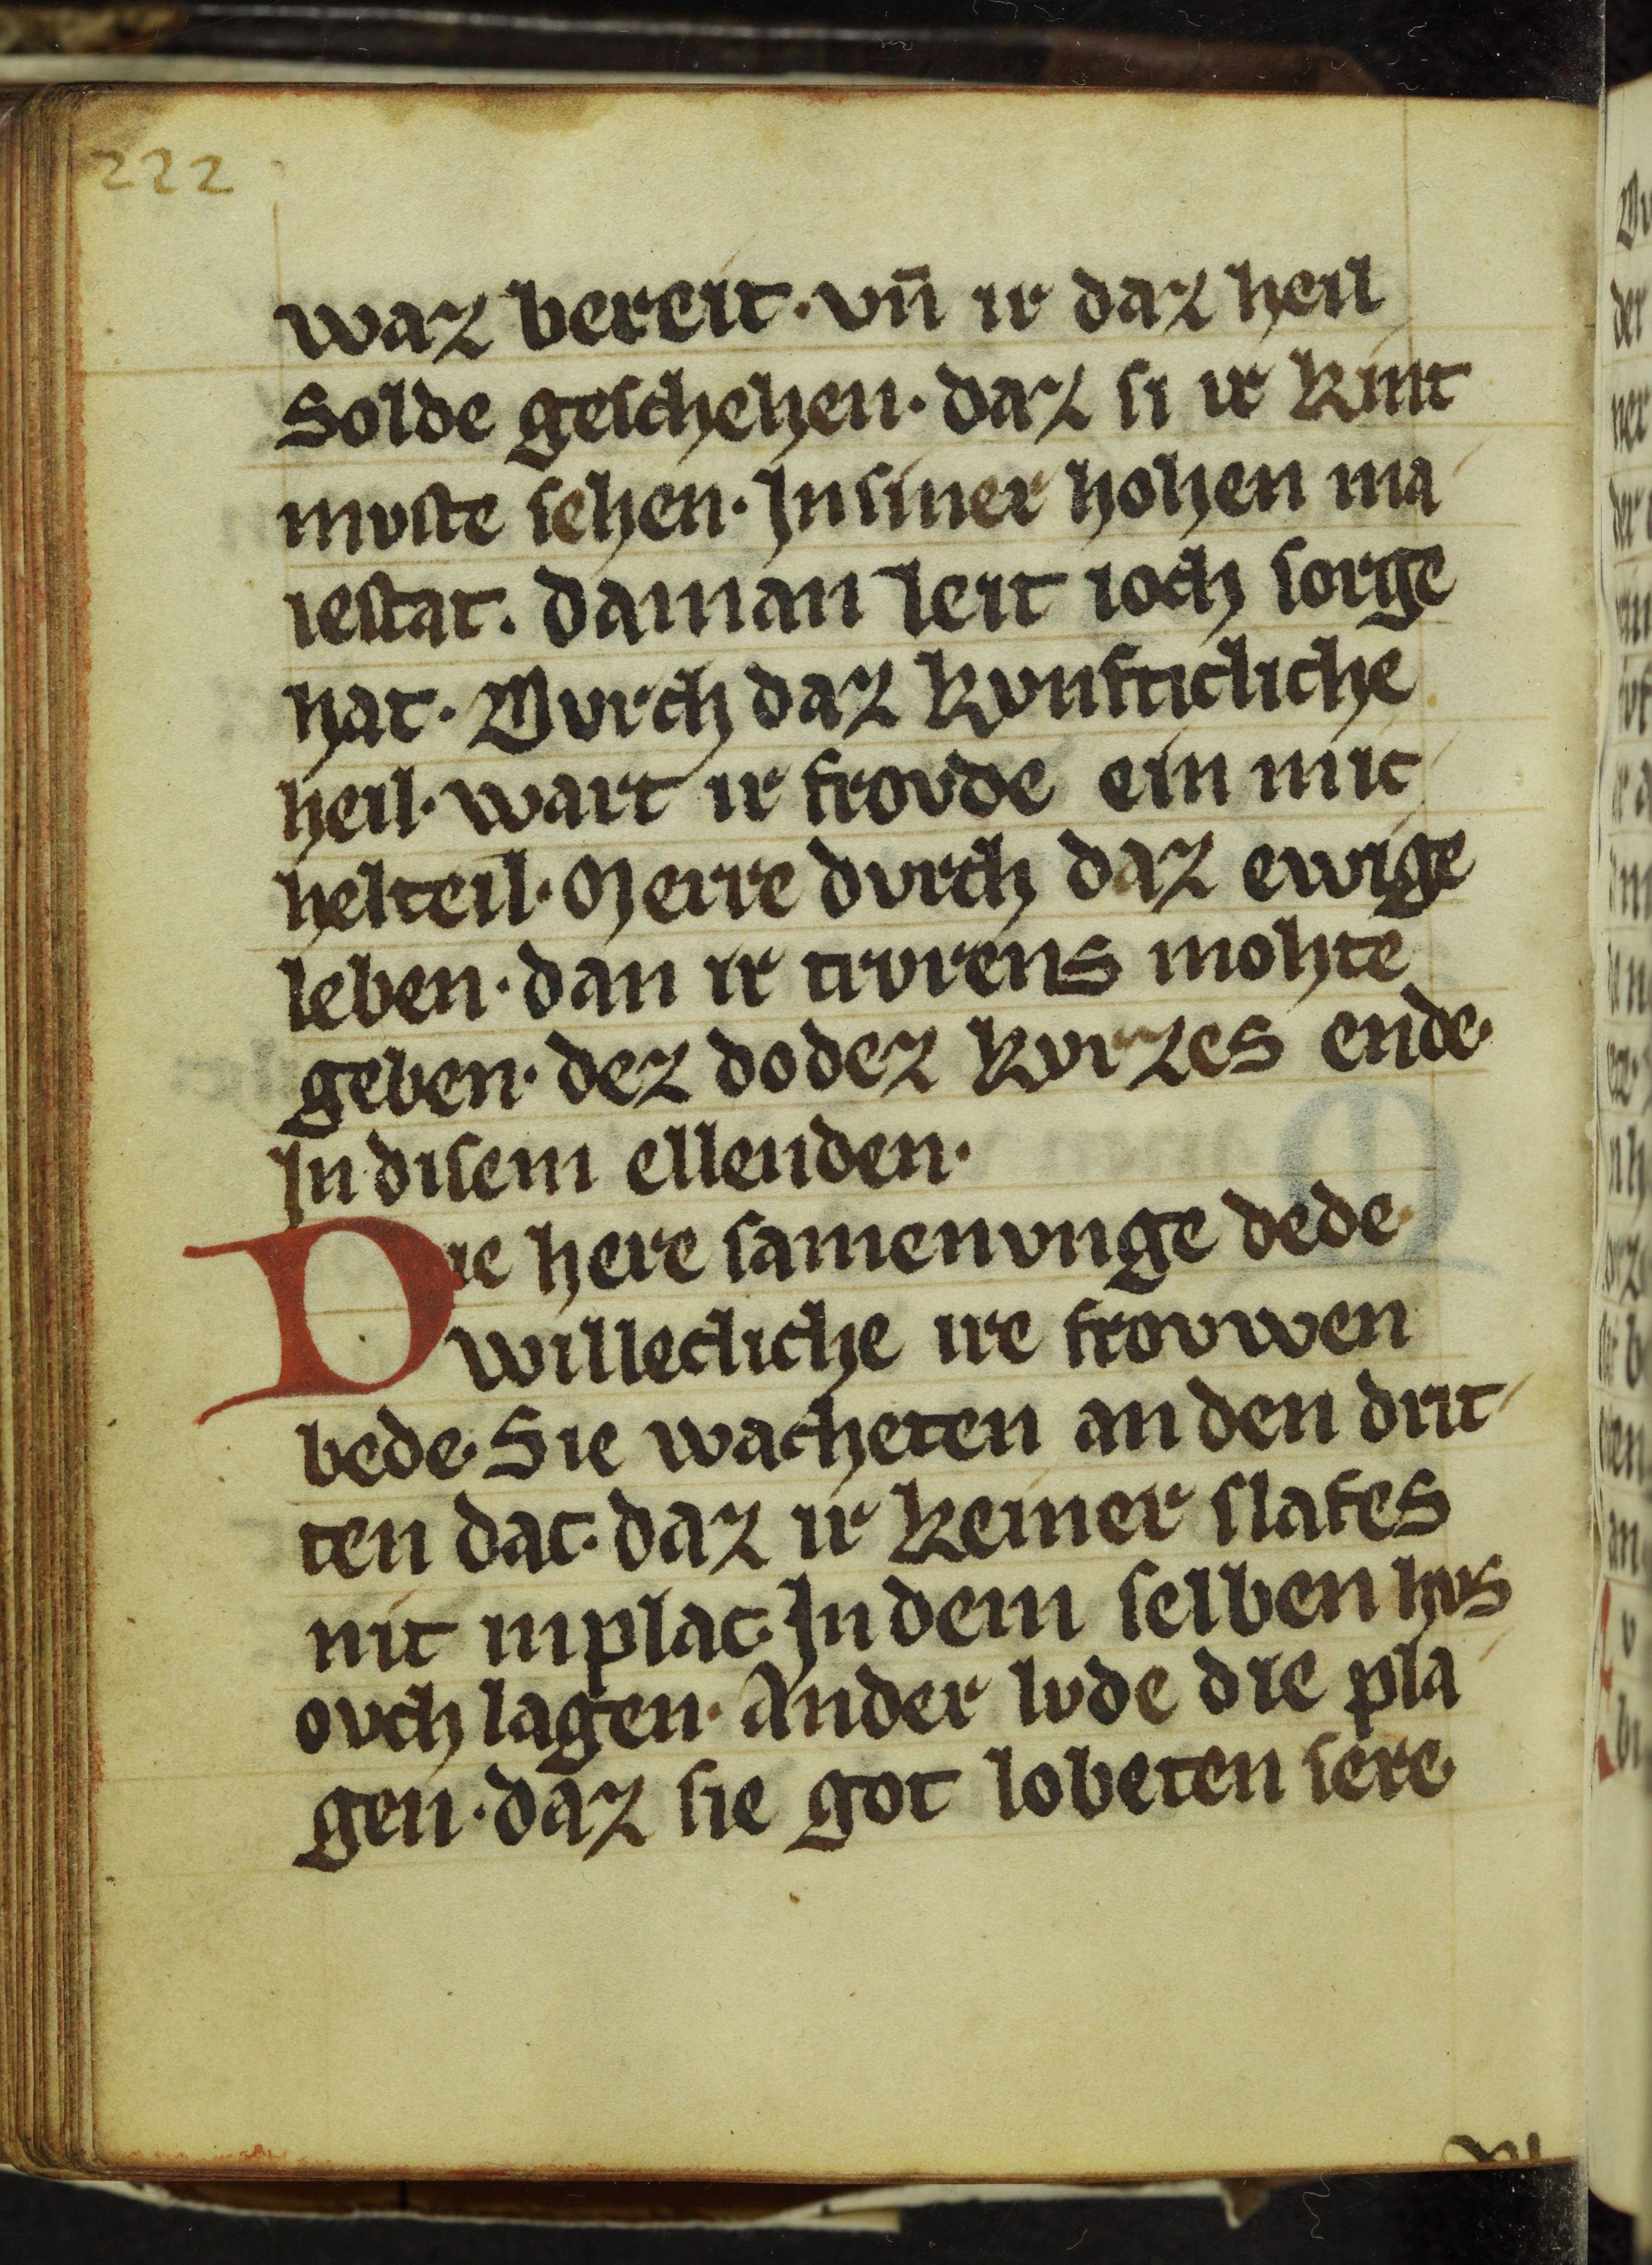 222
waz bereit · vn̄ ir daz heil
Solde geschehen · daz si ir kint
mvste sehen · In siner hohen ma
iestat · da man leit ioch sorge
hat · Dvrch daz kvnfticliche
heil · wart ir frovde ein mit
helteil · Merre dvrch daz ewige
leben · dan ir trvrens mohte
geben · dez dodez kvrzes ende ·
In disem ellenden ·
Die here samenvnge dede ·
willecliche ire frovwen
bede · Sie wacheten an den drit
ten dac · daz ir keiner slafes
nit inplac · In dem selben hvs
ovch lagen · Ander lvde die pla
gen · daz sie got lobeten sere ·